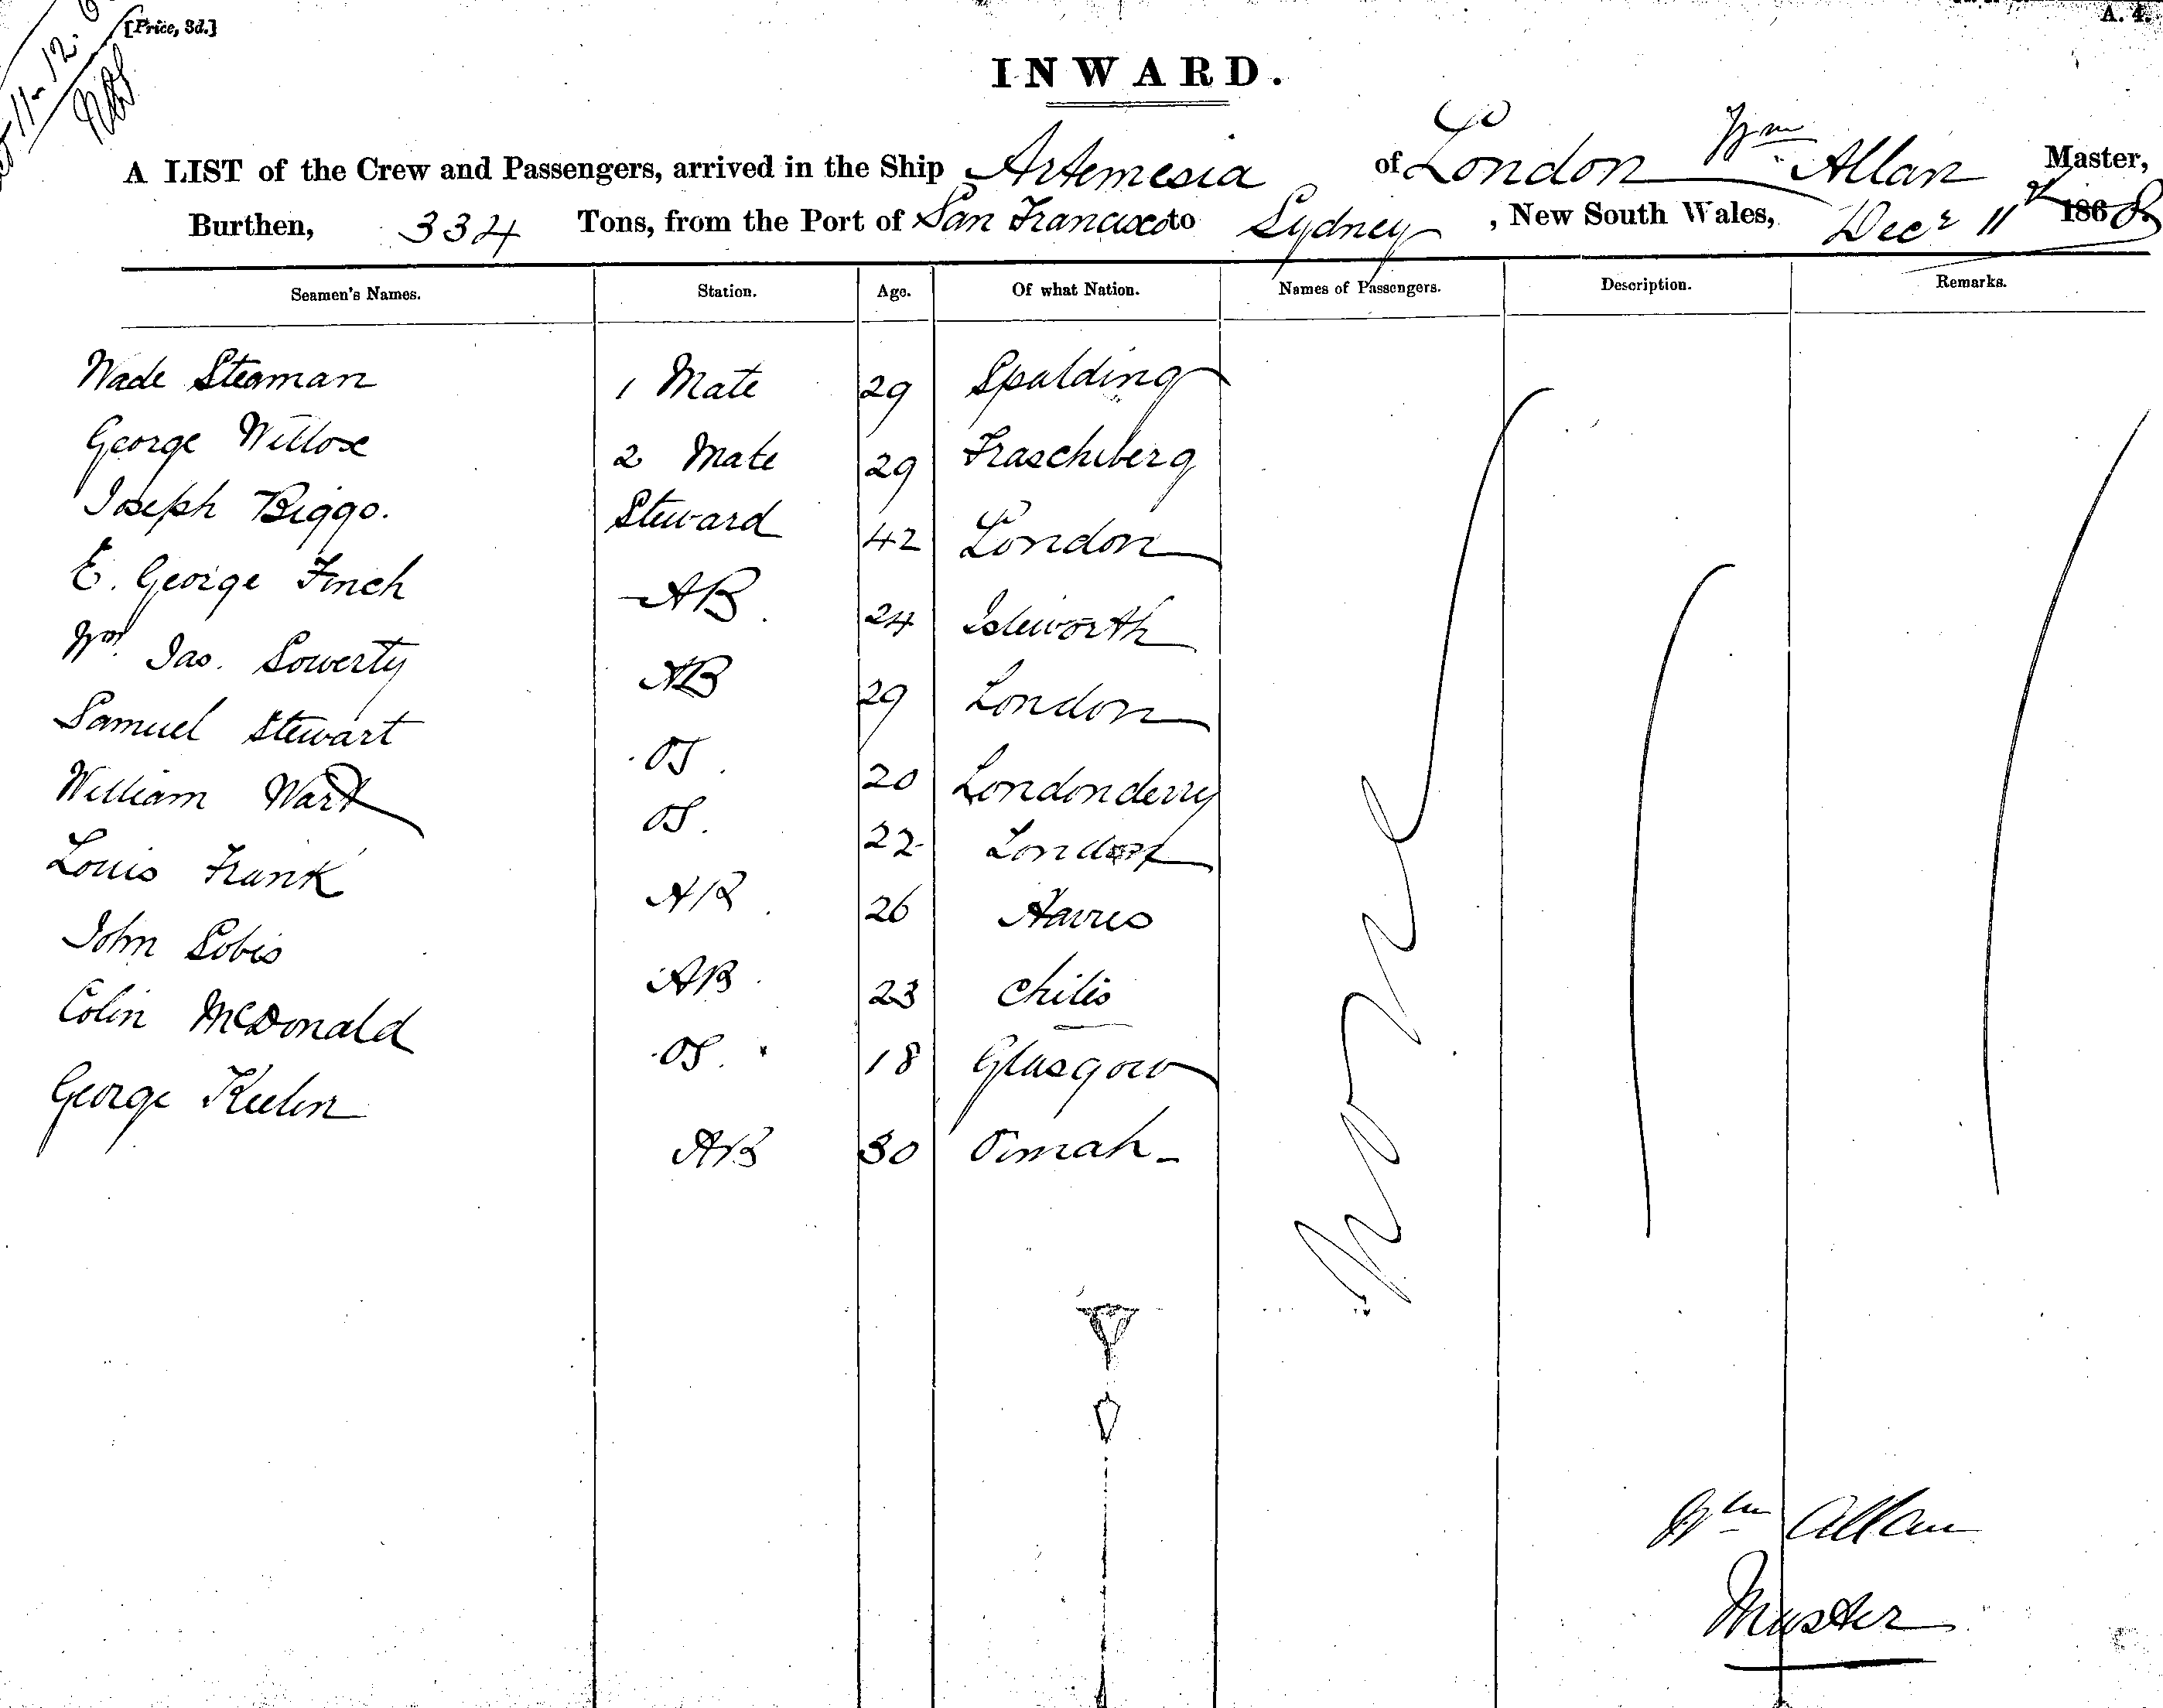 [Price, 3d.]
A. 4.
11-12.
INWARD.
A LIST of the Crew and Passengers, arrived in the Ship Artemesia of London Wm Allan Master,
Burthen, 334 Tons, from the Port of San Francisco to Sydney, New South Wales, Decr 11th 1868
Seamen's Names. Station. Age. Of what Nation. Names of Passengers. Description. Remarks.
Wade Steaman 1 Mate 29 Spalding
George Willox 2 Mate 29 Fraschberg
Joseph Biggs. Steward 42 London
E. George Finch AB. 24 Isleworth
Wm. Jas. Sowerty AB 29 London
Samuel Stewart OS. 20 Londonderry
William Wark OS. 22 London
Louis Frank AB. 26 Havres
John Sobis AB. 23 Chilis
Colin McDonald OS. 18 Glasgow
George Keelen AB 30 Omah
None
Wm Allan
Master